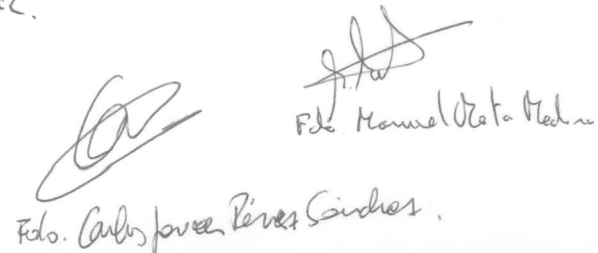 Fdo Manuel Mata Medina
Fdo. Carlos Javier Pérez Sánchez.